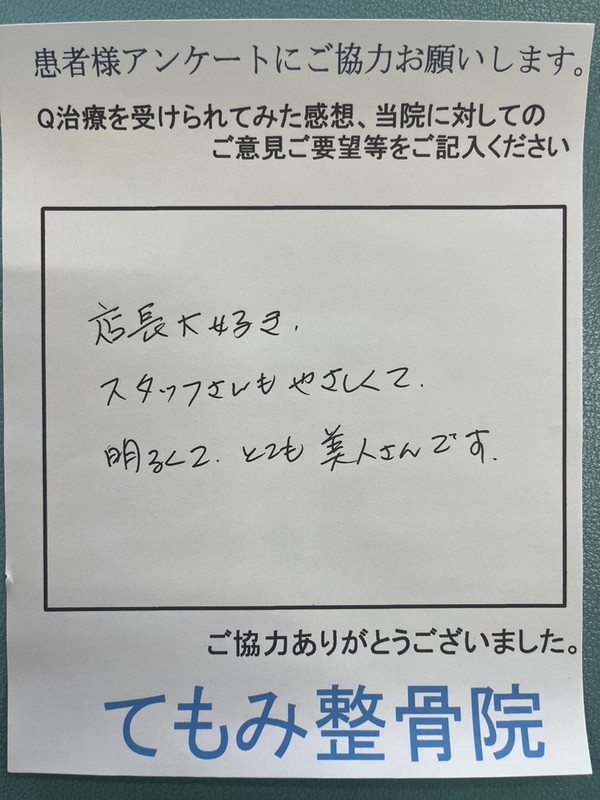 患者様アンケートにご協力お願いします。
Q治療を受けられてみた感想、当院に対しての
ご意見ご要望等をご記入ください
店長大好き、
スタッフさんもやさしくて、
明るくて、とても美人さんです。
ご協力ありがとうございました。
てもみ整骨院